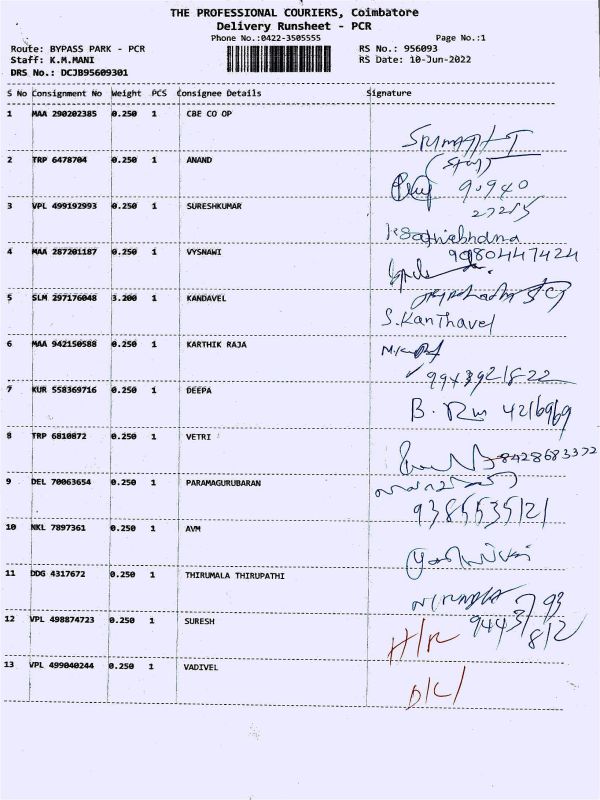 THE PROFESSIONAL COURIERS, Coimbatore
Delivery Runsheet - PCR
Phone No.:0422-3505555 Page No.:1
Route: BYPASS PARK - PCR RS No.: 956093
Staff: K.M.MANI RS Date: 10-Jun-2022
DRS No.: DCJB95609301
S No Consignment No Weight PCS Consignee Details Signature
1 MAA 290202385 0.250 1 CBE CO OP
(Staff)
2 TRP 6478704 0.250 1 ANAND
90940
3 VPL 499192993 0.250 1 SURESHKUMAR
4 MAA 287201187 0.250 1 VYSNAWI
9980447424
5 SLM 297176048 3.200 1 KANDAVEL
S.Kanthavel
6 MAA 942150588 0.250 1 KARTHIK RAJA
7 KUR 558369716 0.250 1 DEEPA
B. Rm 4216969
8 TRP 6810872 0.250 1 VETRI
8428683372
9 DEL 70063654 0.250 1 PARAMAGURUBARAN
9385535121
10 NKL 7897361 0.250 1 AVM
11 DDG 4317672 0.250 1 THIRUMALA THIRUPATHI
12 VPL 498874723 0.250 1 SURESH
9443793
812
H/R
13 VPL 499040244 0.250 1 VADIVEL
D/L/